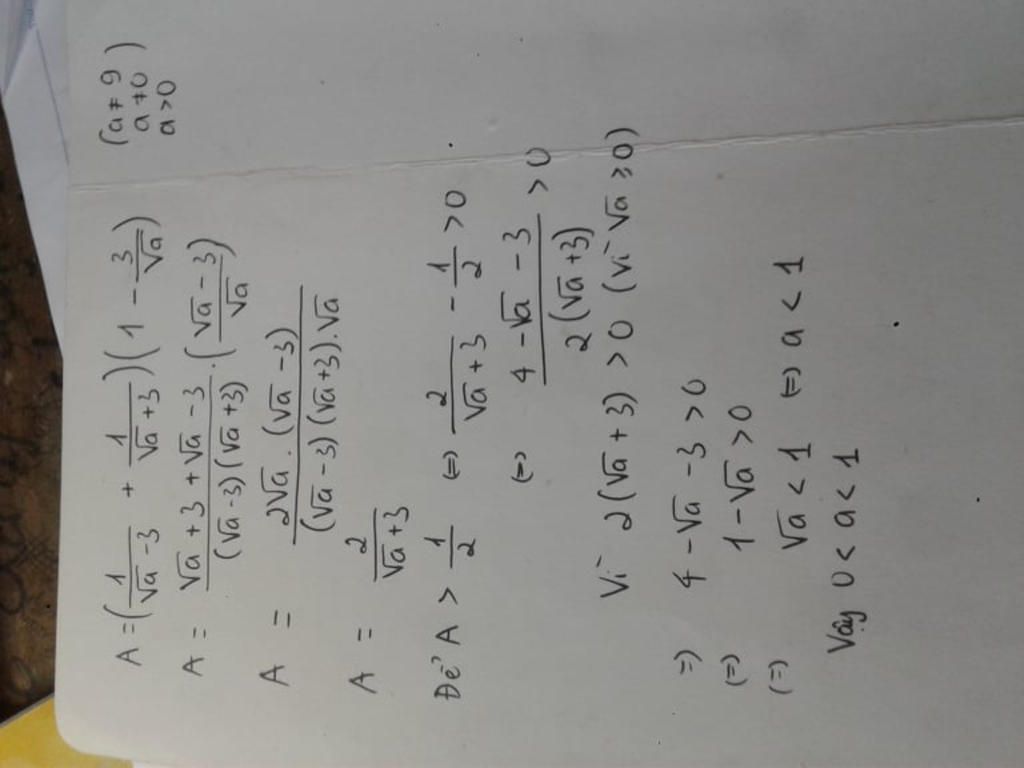 A = (1/(√a - 3) + 1/(√a + 3))(1 - 3/√a) (a ≠ 9
a ≠ 0
a > 0)
A = (√a + 3 + √a - 3)/((√a - 3)(√a + 3)) . ((√a - 3)/√a)
A = (2√a . (√a - 3))/((√a - 3)(√a + 3).√a)
A = 2/(√a + 3)
Để A > 1/2 (=) 2/(√a + 3) - 1/2 > 0
(=) (4 - √a - 3)/(2(√a + 3)) > 0
Vì 2(√a + 3) > 0 (vì √a ≥ 0)
=) 4 - √a - 3 > 0
(=) 1 - √a > 0
(=) √a < 1 (=) a < 1
Vậy 0 < a < 1